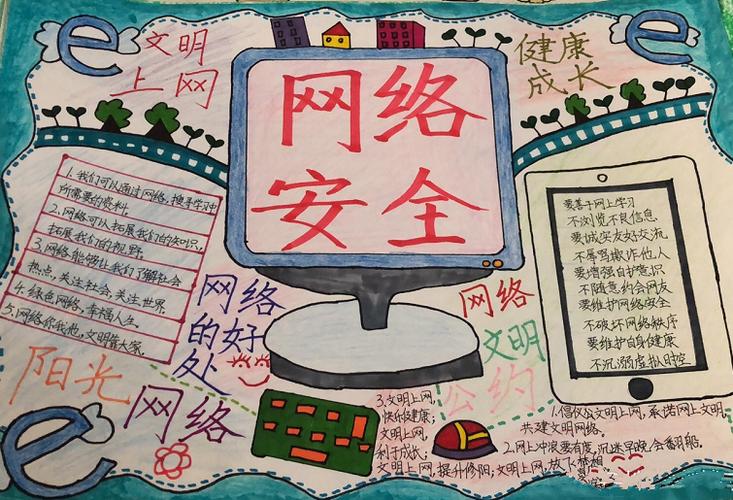 文明
上网
健康
成长
网络
安全
1.我们可以通过网络,搜寻学习中
所需要的资料。
2.网络可以拓展我们的知识,
拓展我们的视野。
3.网络能够让我们了解社会
热点,关注社会,关注世界。
4.绿色网络,幸福人生。
5.网络你我他,文明靠大家。
网络
的好
处
阳光
网络
要善于网上学习
不浏览不良信息
要诚实友好交流
不辱骂欺诈他人
要增强自护意识
不随意约会网友
要维护网络安全
不破坏网络秩序
要维护自身健康
不沉溺虚拟时空
网络
文明
公约
1.倡仪公文明上网,承诺网上文明,
共建文明网络。
2.网上冲浪要有度,沉迷早晚会翻船。
3.文明上网,
快乐健康;
文明上网,
利于成长;
文明上网,提升修阳;文明上网,放飞梦想
e
e
e